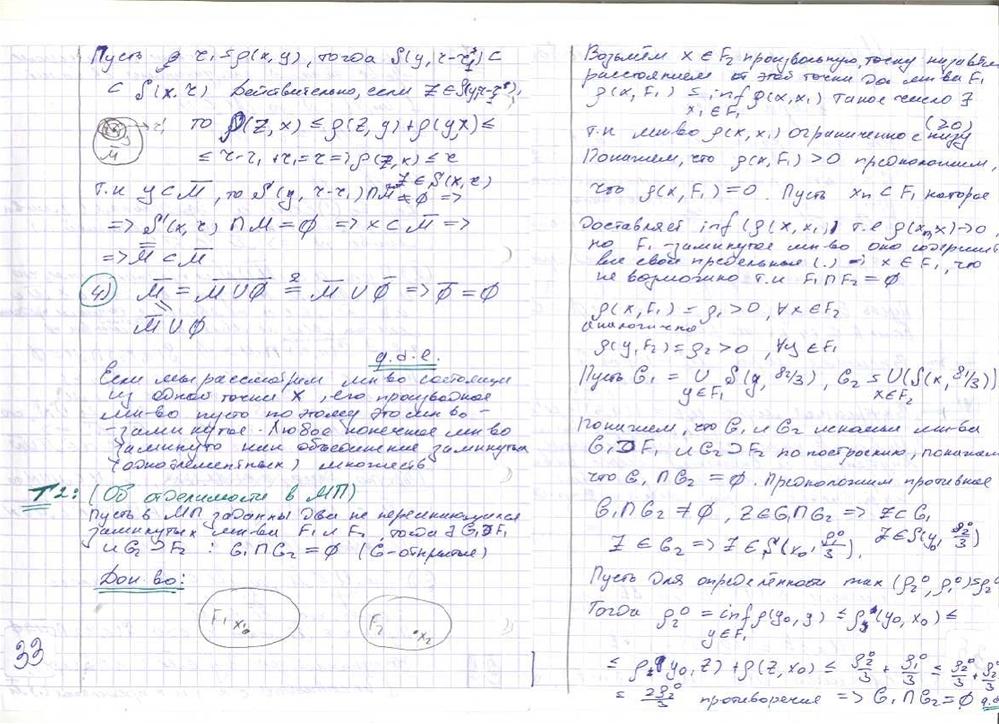 Пусть r₁ = ρ(x,y), тогда S(y, r-r₁) ⊂
⊂ S(x,r) Действительно, если Z ∈ S(y, r-r₁),
то ρ(Z,x) ≤ ρ(Z,y)+ρ(yx) ≤
≤ r-r₁+r₁=r => ρ(Z,x) ≤ r
Z ∈ S(x,r)
M̄
т.к y ⊂ M̄, то S(y, r-r₁) ∩ M ≠ ∅ =>
=> S(x,r) ∩ M = ∅ => x ⊂ M̄ =>
=> M̿ ⊂ M̄
4) M̄ = M∪∅ = M̄ ∪ ∅̄ => ∅̄ = ∅
M̄ ∪ ∅
q.d.e.
Если мы рассмотрим мн-во состоящи
из одной точки x, его производное
мн-во пусто поэтому это мн-во -
-замкнутое. Любое конечное мн-во
замкнуто как объединение замкнутых
(одноэлементных) множеств
T2: (Об отделимости в МП)
Пусть в МП заданны два не пересекающихся
замкнутых мн-ва F₁ и F₂, тогда ∃ G₁⊃F₁
и G₂⊃F₂ : G₁∩G₂=∅ (G-открытые)
Док-во:
F₁ x₀ F₂ •x₂
33
Возьмём x ∈ F₂ произвольную, точку назовём
расстоянием от этой точки до мн-ва F₁
ρ(x,F₁) = inf ρ(x,x₁) такое число ∃
x₁∈F₁ (≥0)
т.к мн-во ρ(x,x₁) ограниченно снизу
Покажем, что ρ(x,F₁)>0 предположим,
что ρ(x,F₁)=0. Пусть xn ⊂ F₁ которое
доставляет inf (ρ(x,x₁)) т.е ρ(xn,x)->0,
но F₁-замкнутое мн-во оно содержит
все свои предельные (.) => x ∈ F₁, что
не возможно т.к F₁∩F₂=∅
ρ(x,F₁)=ρ₁>0, ∀x∈F₂
аналогично
ρ(y,F₂)=ρ₂>0, ∀y∈F₁
Пусть G₁ = ∪ S(y, ρ₂/3), G₂ = ∪(S(x, ρ₁/3))
y∈F₁ x∈F₂
покажем, что G₁ и G₂ искомые мн-ва
G₁⊃F₁ и G₂⊃F₂ по построению, покажем
что G₁∩G₂=∅. Предположим противное
G₁∩G₂≠∅, Z∈G₁∩G₂ => Z⊂G₁
Z∈G₂ => Z∈S(x₀, ρ₁⁰/3), Z∈S(y₀, ρ₂⁰/3)
Пусть для определённости max (ρ₂⁰, ρ₁⁰)=ρ₂⁰
Тогда ρ₂⁰ = inf ρ(y₀,y) ≤ ρ(y₀,x₀) ≤
y∈F₁
≤ ρ(y₀,Z)+ρ(Z,x₀) ≤ ρ₂⁰/3 + ρ₁⁰/3 ≤ ρ₂⁰/3 + ρ₂⁰/3
= 2ρ₂⁰/3 противоречие => G₁∩G₂=∅ q.d